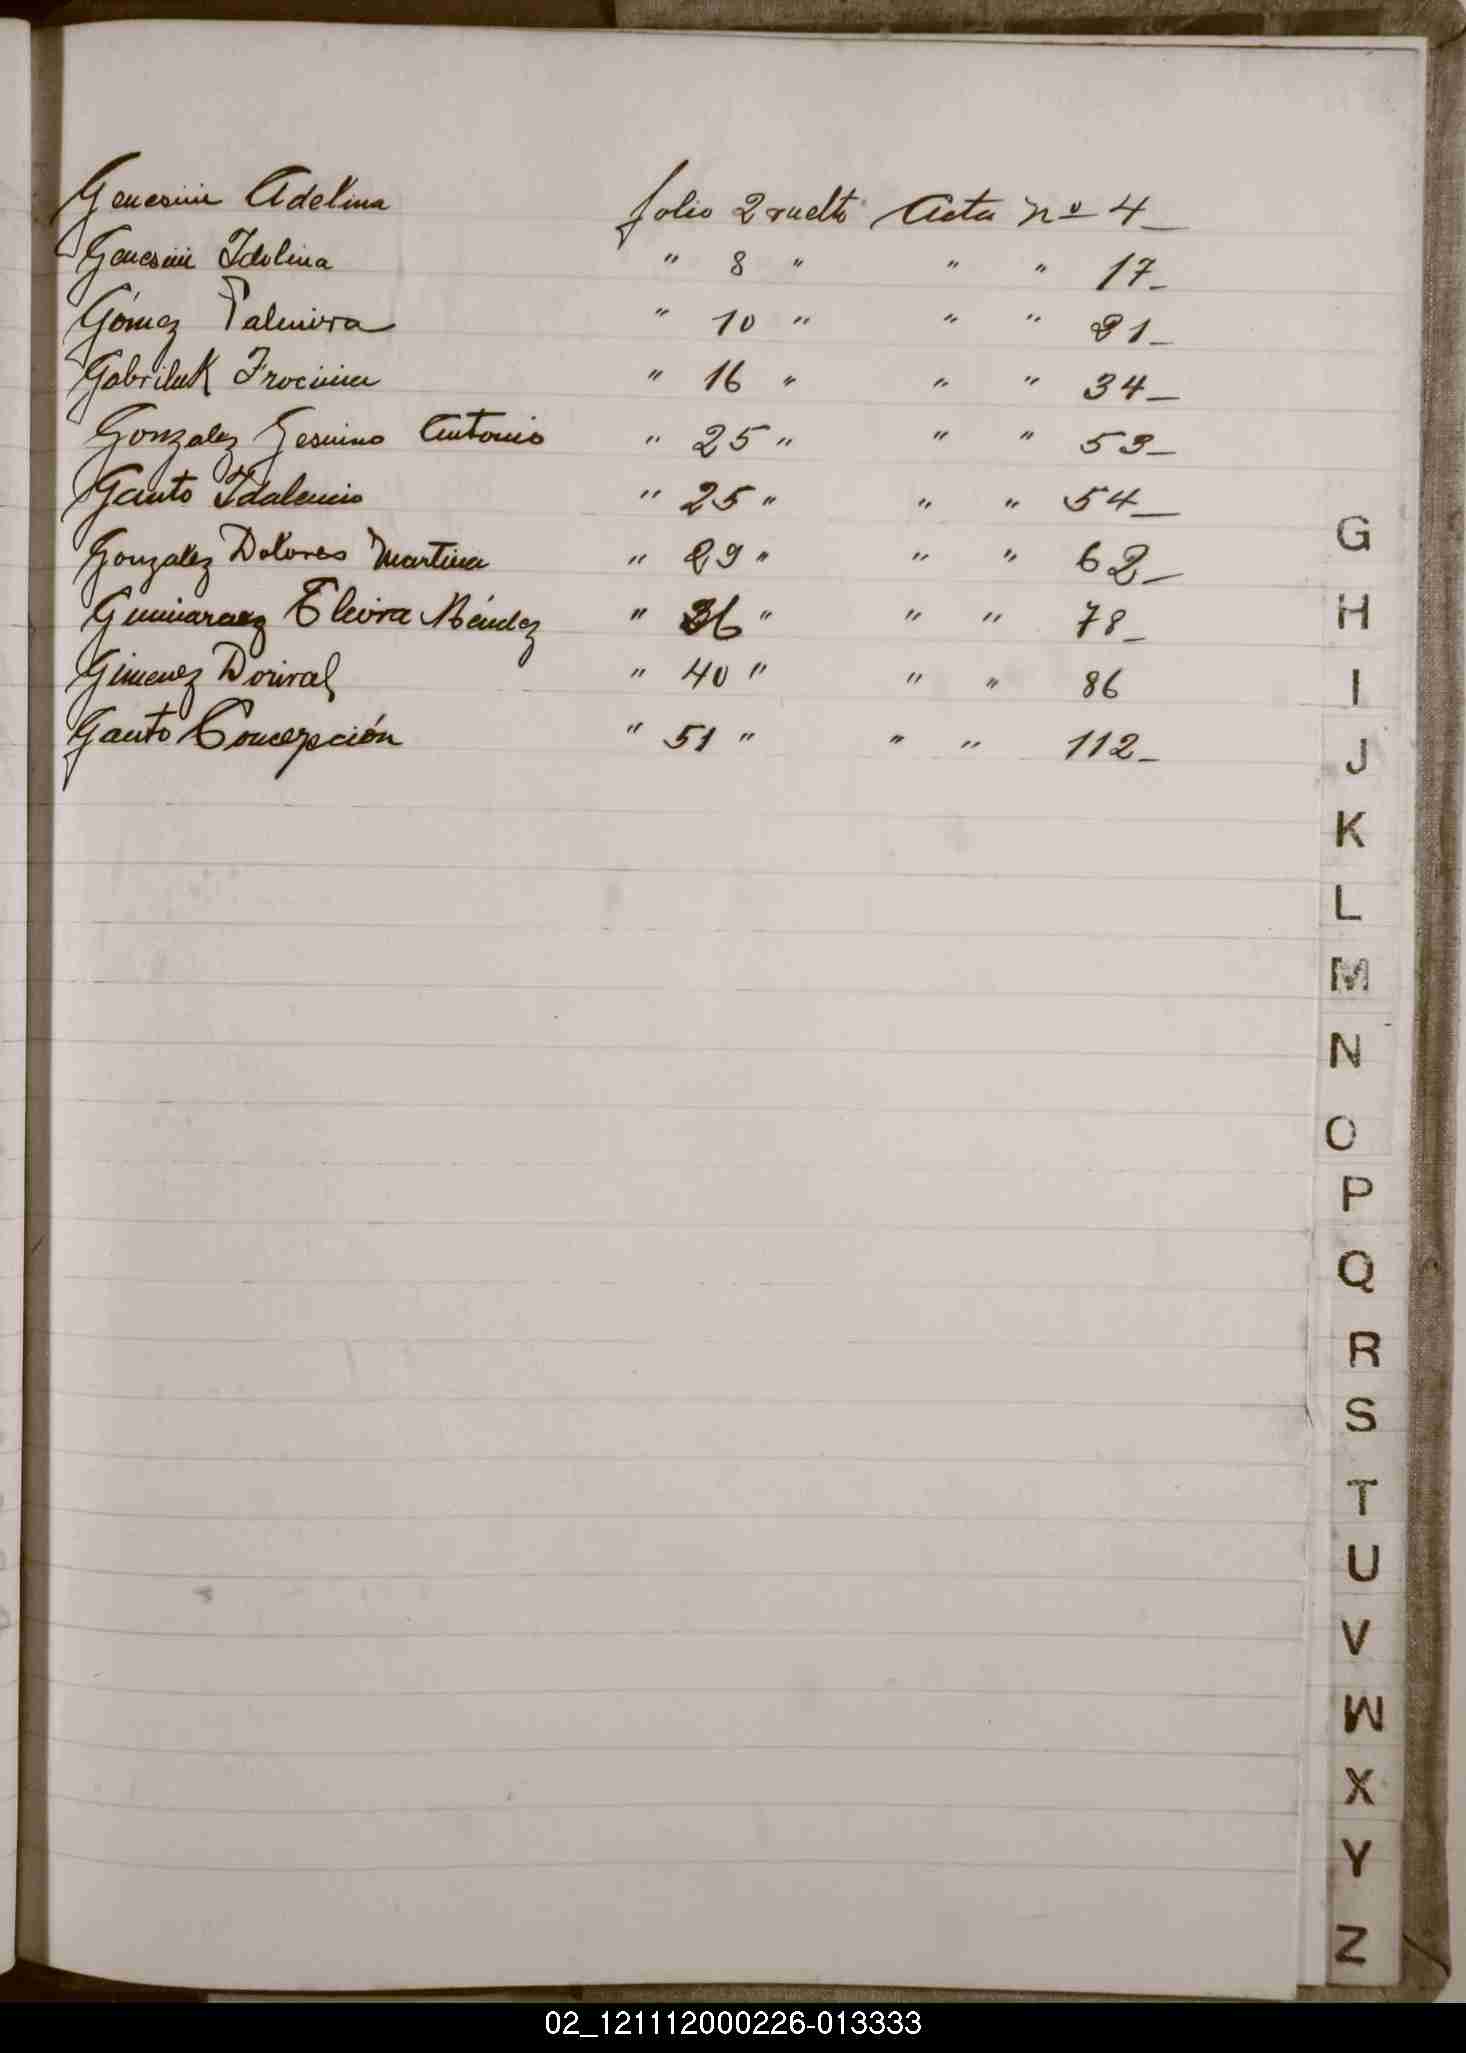 Genesini Adelina folio 2 vuelto Acta nº 4_
Genesini Idolina " 8 " " " 17_
Gómez Palmira " 10 " " " 21_
Gabriluk Frocinia " 16 " " " 34_
Gonzalez Gesuino Antonio " 25 " " " 53_
Gauto Idalencio " 25 " " " 54_
Gonzalez Dolores Martina " 29 " " " 62_
Guimaraez Elvira Méndez " 36 " " " 78_
Gimenez Dorival " 40 " " " 86
Gauto Concepción " 51 " " " 112_
G
H
I
J
K
L
M
N
O
P
Q
R
S
T
U
V
W
X
Y
Z
02_121112000226-013333